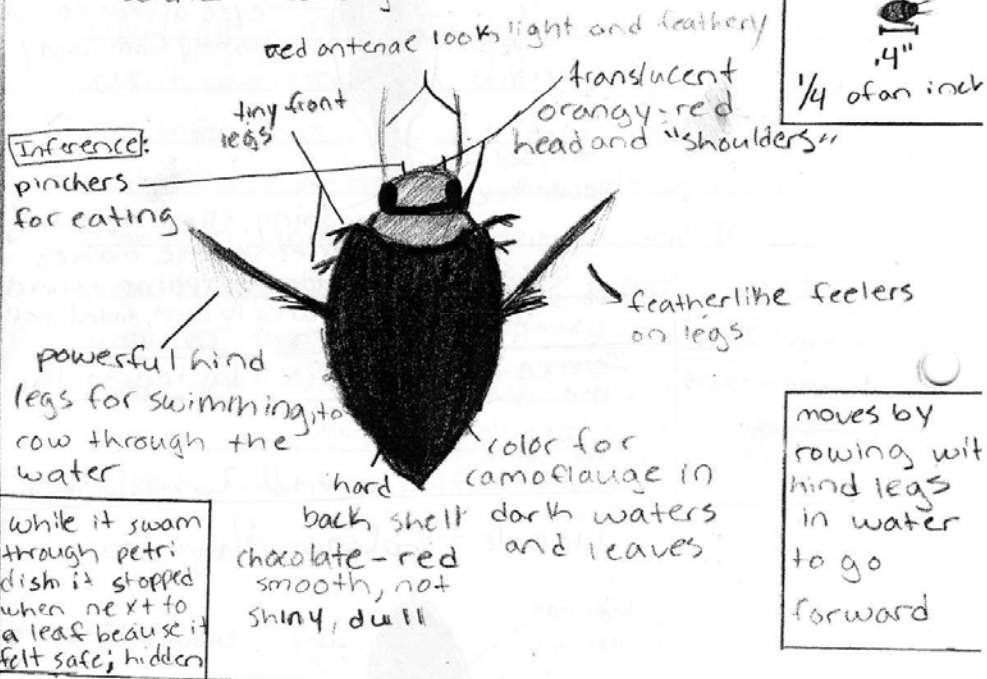 red antenae look light and feathery
.4"
1/4 of an inch
tiny front
legs
translucent
orangy-red
head and "shoulders"
Inference:
pinchers
for eating
featherlike feelers
on legs
powerful hind
legs for swimming, to
row through the
water
color for
camoflauge in
dark waters
and leaves
hard
back shell
chocolate-red
smooth, not
shiny, dull
moves by
rowing wit
hind legs
in water
to go
forward
while it swam
through petri
dish it stopped
when next to
a leaf beause it
felt safe; hidden